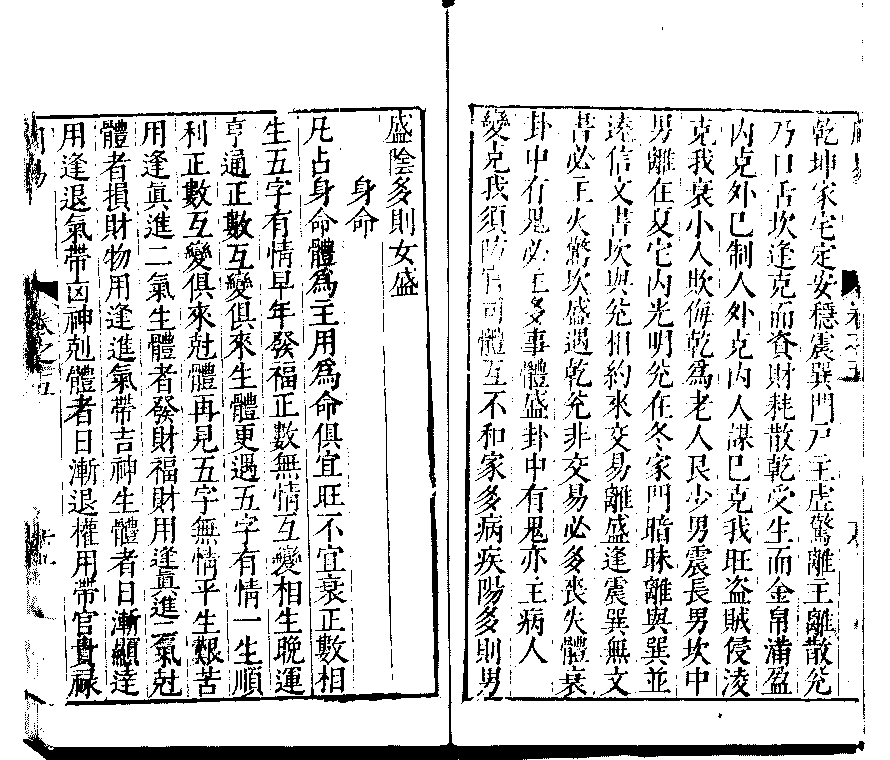 乾坤家宅定安穩震巽門戸主虛驚離主離散兊
乃口舌坎逢克而資財耗散乾受生而金帛滿盈
內克外已制人外克內人謀巳克我旺盗賊侵淩
克我衰小人欺侮乾爲老人艮少男震長男坎中
男離在夏宅內光明兊在冬家門暗昧離與巽並
逵信文書坎與兊相約來交易離盛逢震巽無文
書必主火驚坎盛遇乾兊非交易必多喪失體衰
卦中有鬼必主多事體盛卦中有鬼亦主病人
變克我須防官司體互不和家多病疾陽多則男
盛陰多則女盛
身命
凡占身命體爲主用爲命俱宜旺不宜衰正數相
生五字有情早年發福正數無情互變相生晚運
亨通正數互變俱來生體更遇五字有情一生順
利正數互變俱來尅體再見五字無情平生艱苦
用逢眞進二氣生體者發財福財用逢眞進二氣尅
體者損財物用逢進氣帶吉神生體者日漸顯逹
用逢退氣帶凶神尅體者日漸退權用帶官貴祿
卷之五